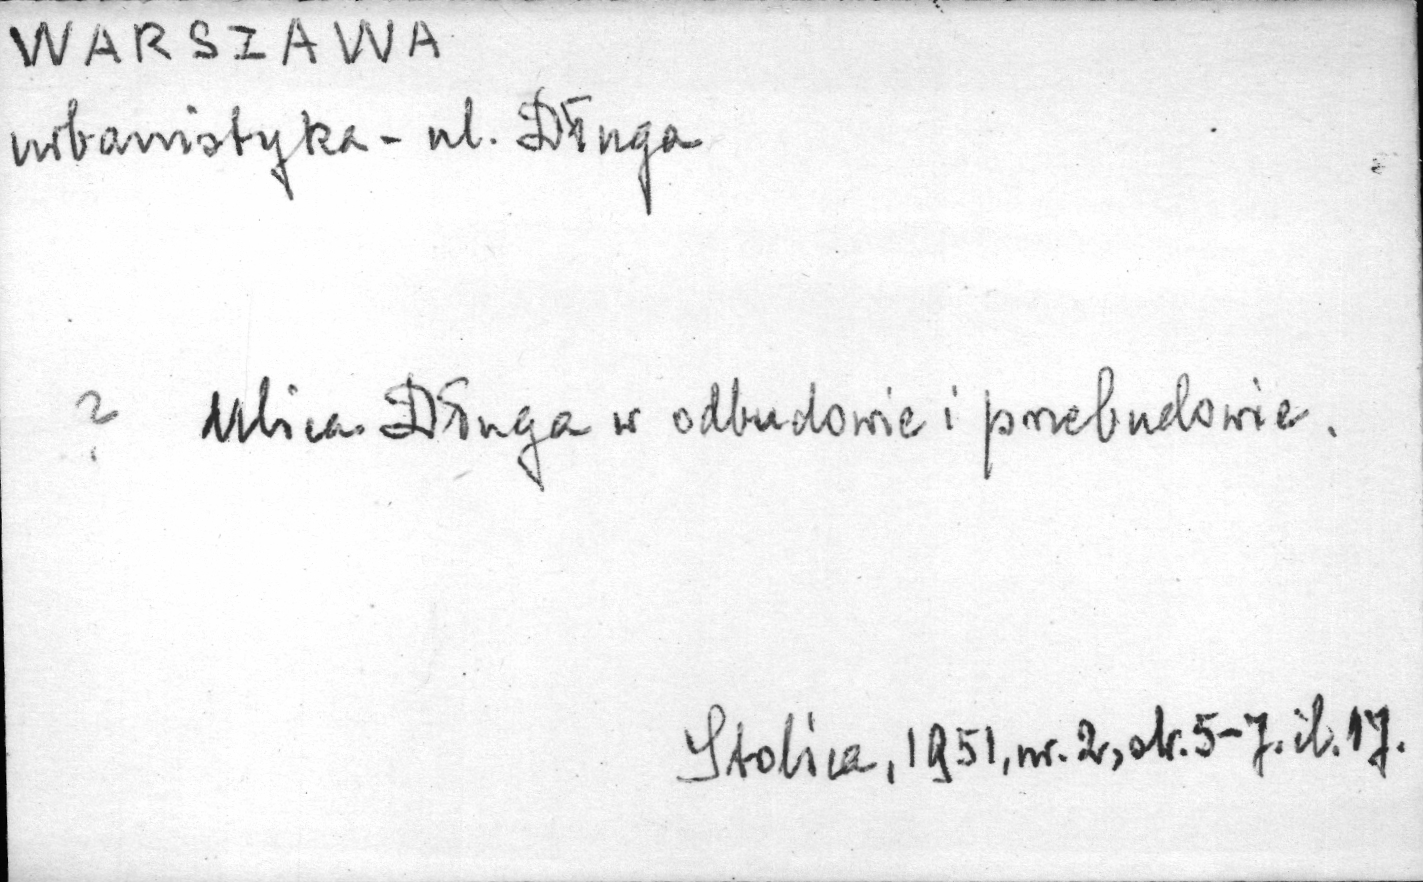 WARSZAWA
urbanistyka - ul. Długa
? Ulica Długa w odbudowie i przebudowie.
Stolica, 1951, nr. 2, str. 5-7. il. 17.